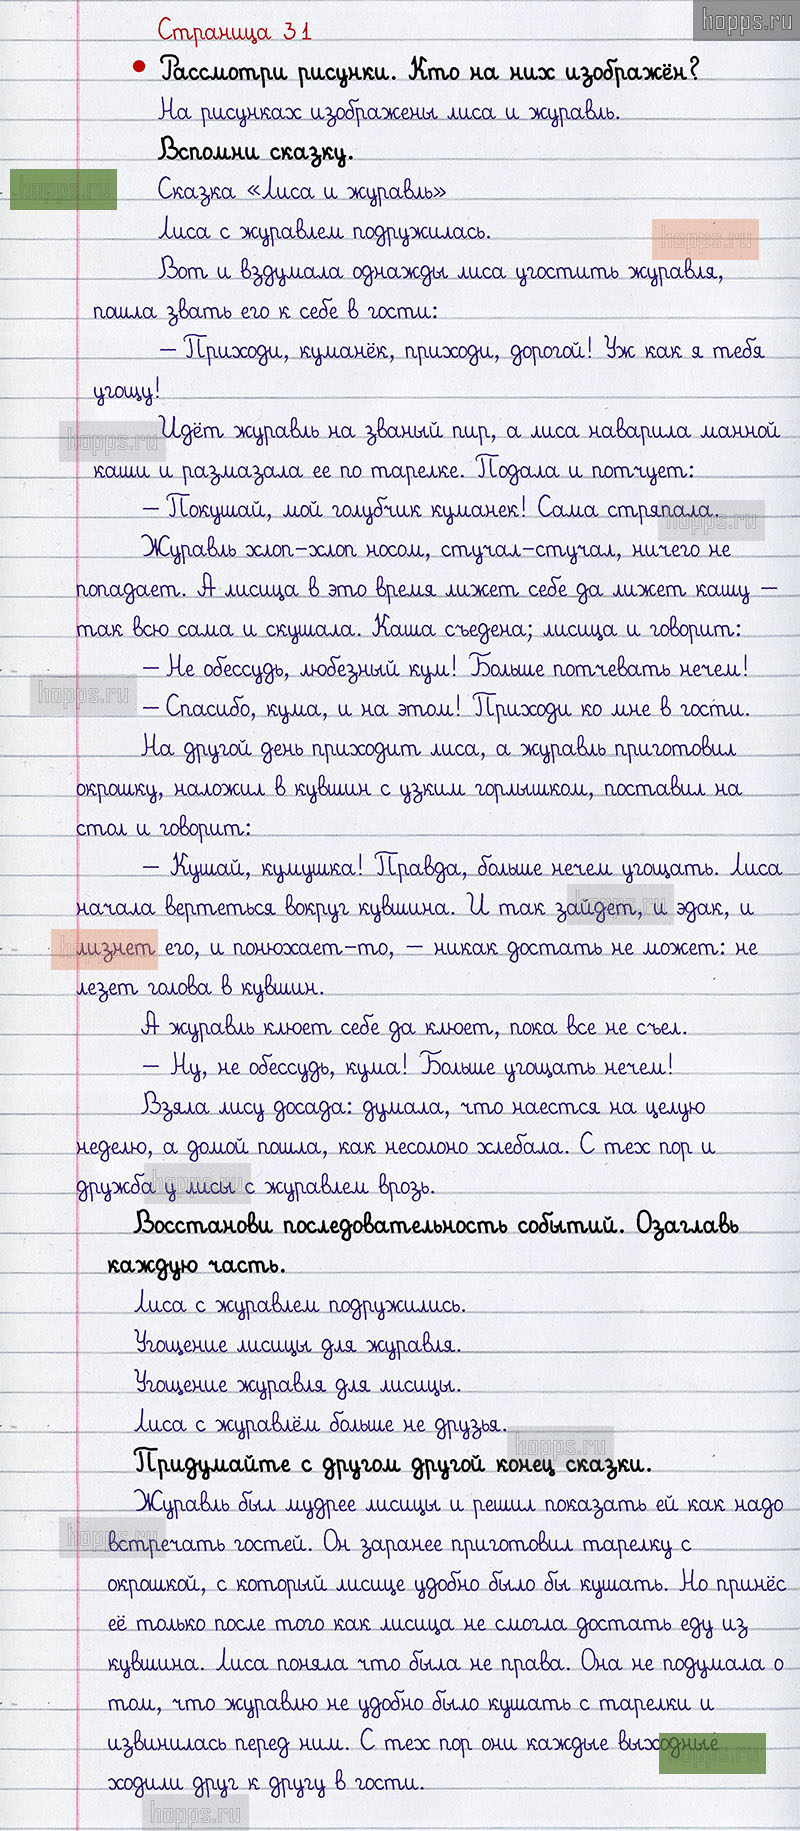 hopps.ru
Страница 31
Рассмотри рисунки. Кто на них изображён?
На рисунках изображены лиса и журавль.
Вспомни сказку.
hopps.ru
Сказка «Лиса и журавль»
Лиса с журавлем подружилась.
hopps.ru
Вот и вздумала однажды лиса угостить журавля,
пошла звать его к себе в гости:
– Приходи, куманёк, приходи, дорогой! Уж как я тебя
угощу!
hopps.ru
Идёт журавль на званый пир, а лиса наварила манной
каши и размазала ее по тарелке. Подала и потчует:
– Покушай, мой голубчик куманек! Сама стряпала.
hopps.ru
Журавль хлоп-хлоп носом, стучал-стучал, ничего не
попадает. А лисица в это время лижет себе да лижет кашу –
так всю сама и скушала. Каша съедена; лисица и говорит:
– Не обессудь, любезный кум! Больше потчевать нечем!
hopps.ru
– Спасибо, кума, и на этом! Приходи ко мне в гости.
На другой день приходит лиса, а журавль приготовил
окрошку, наложил в кувшин с узким горлышком, поставил на
стол и говорит:
– Кушай, кумушка! Правда, больше нечем угощать. Лиса
начала вертеться вокруг кувшина. И так зайдет, и эдак, и
hopps.ru
лизнет его, и понюхает-то, – никак достать не может: не
лезет голова в кувшин.
А журавль клюет себе да клюет, пока все не съел.
– Ну, не обессудь, кума! Больше угощать нечем!
Взяла лису досада: думала, что наестся на целую
неделю, а домой пошла, как несолоно хлебала. С тех пор и
дружба у лисы с журавлем врозь.
hopps.ru
Восстанови последовательность событий. Озаглавь
каждую часть.
Лиса с журавлем подружились.
Угощение лисицы для журавля.
Угощение журавля для лисицы.
Лиса с журавлём больше не друзья.
hopps.ru
Придумайте с другом другой конец сказки.
Журавль был мудрее лисицы и решил показать ей как надо
hopps.ru
встречать гостей. Он заранее приготовил тарелку с
окрошкой, с который лисице удобно было бы кушать. Но принёс
её только после того как лисица не смогла достать еду из
кувшина. Лиса поняла что была не права. Она не подумала о
том, что журавлю не удобно было кушать с тарелки и
извинилась перед ним. С тех пор они каждые выходные
hopps.ru
ходили друг к другу в гости.
hopps.ru